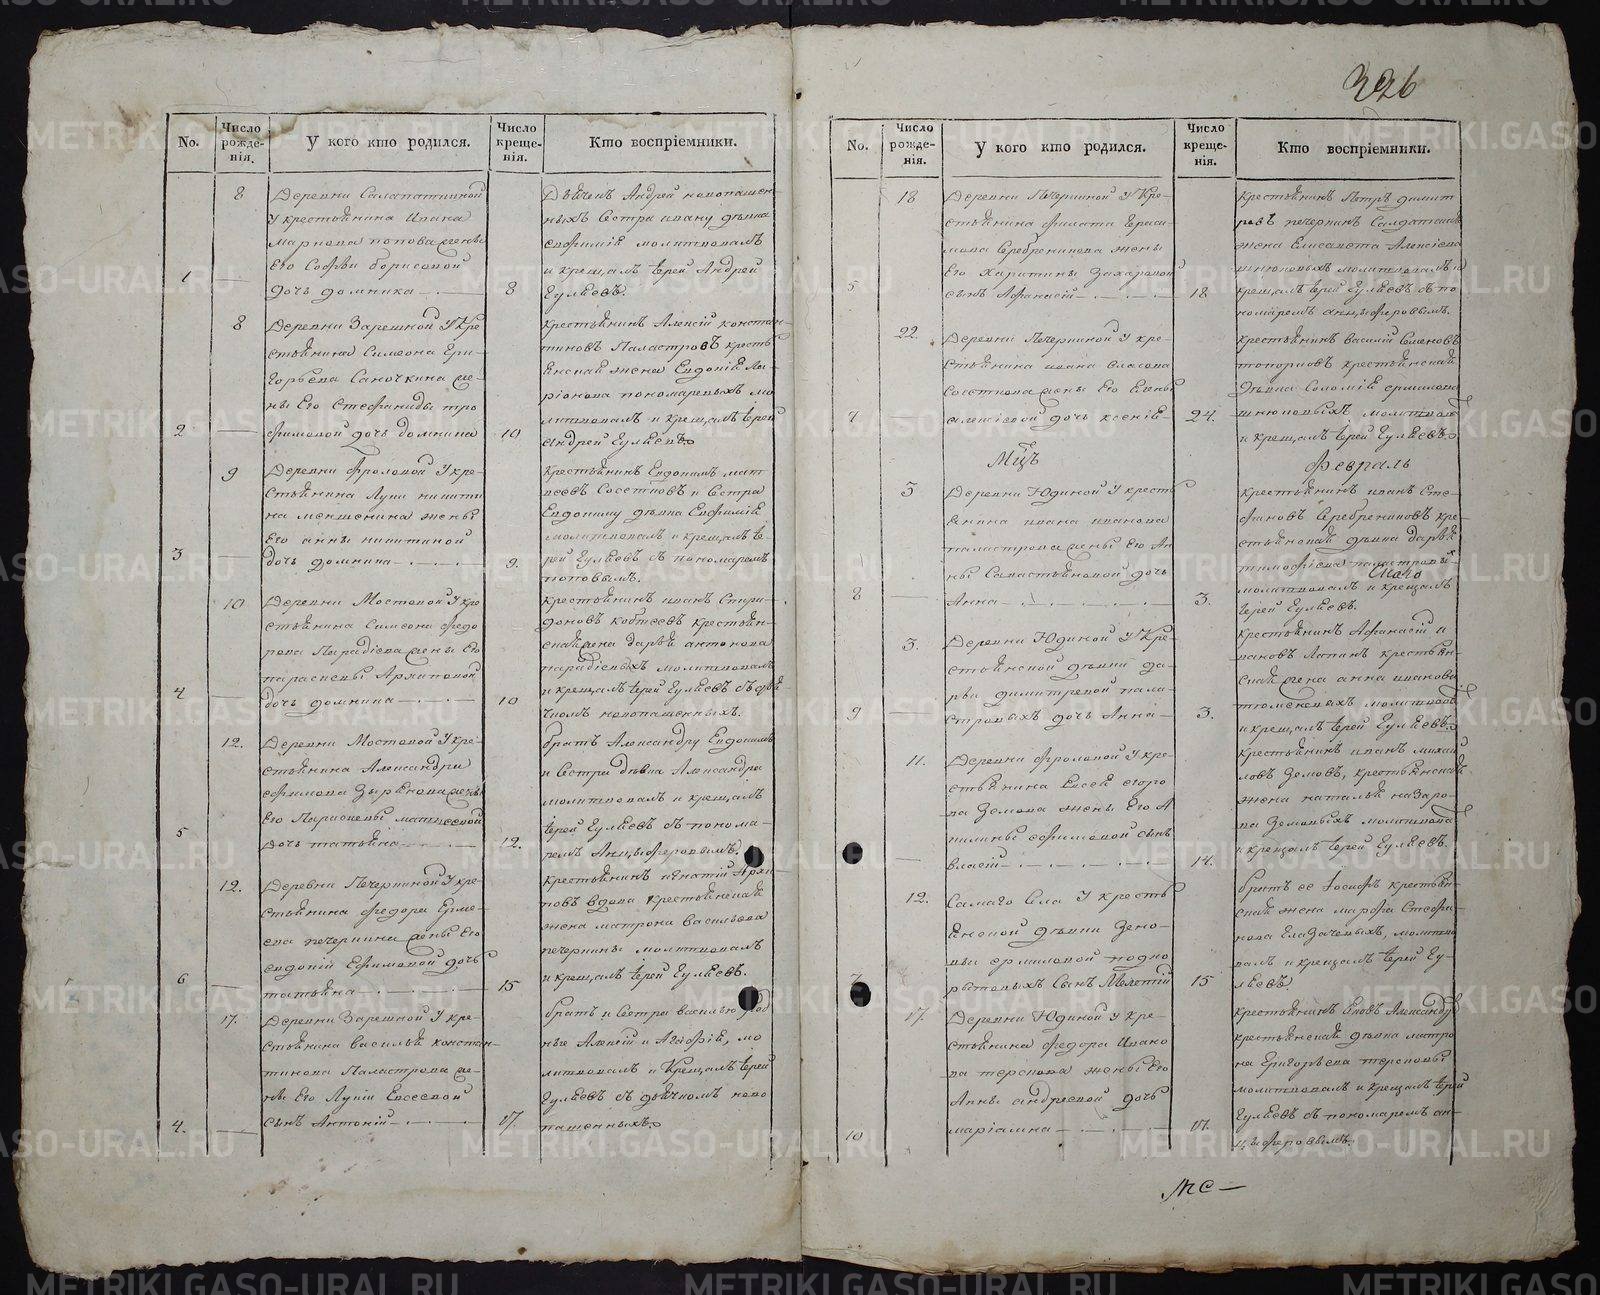 326
No.
Число рожде-нія.
У кого кто родился.
Число креще-нія.
Кто воспріемники.
8
Деревни
У крестьянина Ивана
Маркова Попова жены
Его Софьи борисовой
1
дочь домника
8
Дьячекъ Андрей новопашен-
ныхъ Сестра ивану дѣвка
Евфимія молитвовалъ
и крещалъ Іерей Андрей
Гуляевъ.
8
Деревни Зарешной У кре-
стьянина Симеона Гри-
горьева Саночкина же-
ны Его Стефаниды тро
2
фимовой дочь домника
10
крестьянинъ Алексій констан-
тиновъ Паластровъ кресть
янская жена Евдокія Ла-
ріонова пономаревыхъ мо
литвовалъ и крещалъ Іерей
андрей Гуляевъ
9
Деревни Фроловой У кре-
стьянина Луки никити
на меншенина жены
Его анны никитиной
3
дочь домника
9.
крестьянинъ Евдокимъ мат
веевъ и Сестра
Евдокиму дѣвка Евфимія
молитвовалъ и крещалъ Іе-
рей Гуляевъ съ пономаремъ
поповымъ.
10
Деревни Мостовой У кре
стьянина Симеона федо
рова жены Его
парасковьи Архиповой
4
дочь домника
10
крестьянинъ иванъ Спири-
доновъ крестьян-
ская жена дарья антонова
молитвовалъ
и крещалъ Іерей Гуляевъ съ дья-
чкомъ новопашенныхъ.
12.
Деревни Мостовой У кре-
стьянина Александра
ефимова Зырянова жены
Его Парасковьи матвеевой
5
дочь татьяна
12.
братъ Александру Евдокимъ
и Сестра дѣвка Александра
молитвовалъ и крещалъ
Іерей Гуляевъ съ понома-
ремъ Анцыферовымъ.
12.
Деревни Печеркиной У кре-
стьянина Федора Ерме-
ева печеркина жены Его
евдокіи Ефимовой дочь
6
татьяна
15
крестьянинъ игнатій Архи-
повъ вдова крестьянская
жена матрона васильева
печеркины молитвовалъ
и крещалъ Іерей Гуляевъ.
17.
Деревни Зарешной У кре-
стьянина василья констан-
тинова Паластрова же-
ны Его Лукіи Евсеевой
4.
сынъ Антоній
17.
братъ и Сестра василью род
ные Алексій и Агафія, мо
литвовалъ и Крещалъ Іерей
Гуляевъ съ дьячкомъ ново
пашенныхъ
No.
Число рожде-нія.
У кого кто родился.
Число креще-нія.
Кто воспріемники.
18
Деревни Печеркиной У кре-
стьянина филата Гераси-
мова Серебреникова жены
Его Харитины Захаровой
5
сынъ Афанасій
18
крестьянинъ Петръ димит
ріевъ печеркинъ Салдатская
жена Елисавета Алексіева
шнюковыхъ молитвовалъ и
крещалъ Іерей Гуляевъ съ по
номаремъ анцыферовымъ.
22.
Деревни Печеркиной У кре-
стьянина ивана власова
жены Его Евгеніи
7
алексіевой дочь ксенія
24.
крестьянинъ василій
крестьянская
дѣвка Соломія ермилова
шнюковыхъ молитвовалъ
и крещалъ Іерей Гуляевъ
Мцъ
Февраль
3
Деревни Юдиной У кресть
янина ивана иванова
паластрова жены Его Ан
ны Савастьяновой дочь
8
Анна
3.
крестьянинъ иванъ Сте-
фановъ Серебрениковъ кре-
стьянская дѣвка дарья
тимофіева паластровы
молитвовалъ и крещалъ
Іерей Гуляевъ.
3.
Деревни Юдиной У кре-
стьянской дѣвки да-
рьи димитревой пала-
9
стровыхъ дочь Анна
3.
крестьянинъ Афанасій и
вановъ Лапинъ крестьян-
ская жена анна иванова
молитвовалъ
и крещалъ Іерей Гуляевъ
11.
Деревни Фроловой У кре-
стьянина Евсея егоро
ва Земова жены Его А
килины ефимовой сынъ
власій
14.
крестьянинъ иванъ михай
ловъ Земовъ, крестьянская
жена наталья назаро-
ва Земовыхъ молитвовалъ
и крещалъ Іерей Гуляевъ.
12.
Самаго Села У кресть
янской дѣвки Зено-
віи ермиловой
7
Сынъ Мелетій
15
братъ ее Іосифъ крестьян-
ская жена марфа Стефа-
нова Глазачевыхъ, молитво
валъ и крещалъ Іерей Гу-
ляевъ
17.
Деревни Юдиной у кре-
стьянина федора Ивано
ва терскова жены Его
Анны андреевой дочь
10
маріамна
17.
крестьянинъ Яковъ Александр
крестьянская дѣвка матро
на Григорьева терсковы
молитвовалъ и крещалъ Іерей
Гуляевъ съ пономаремъ ан-
цыферовымъ.